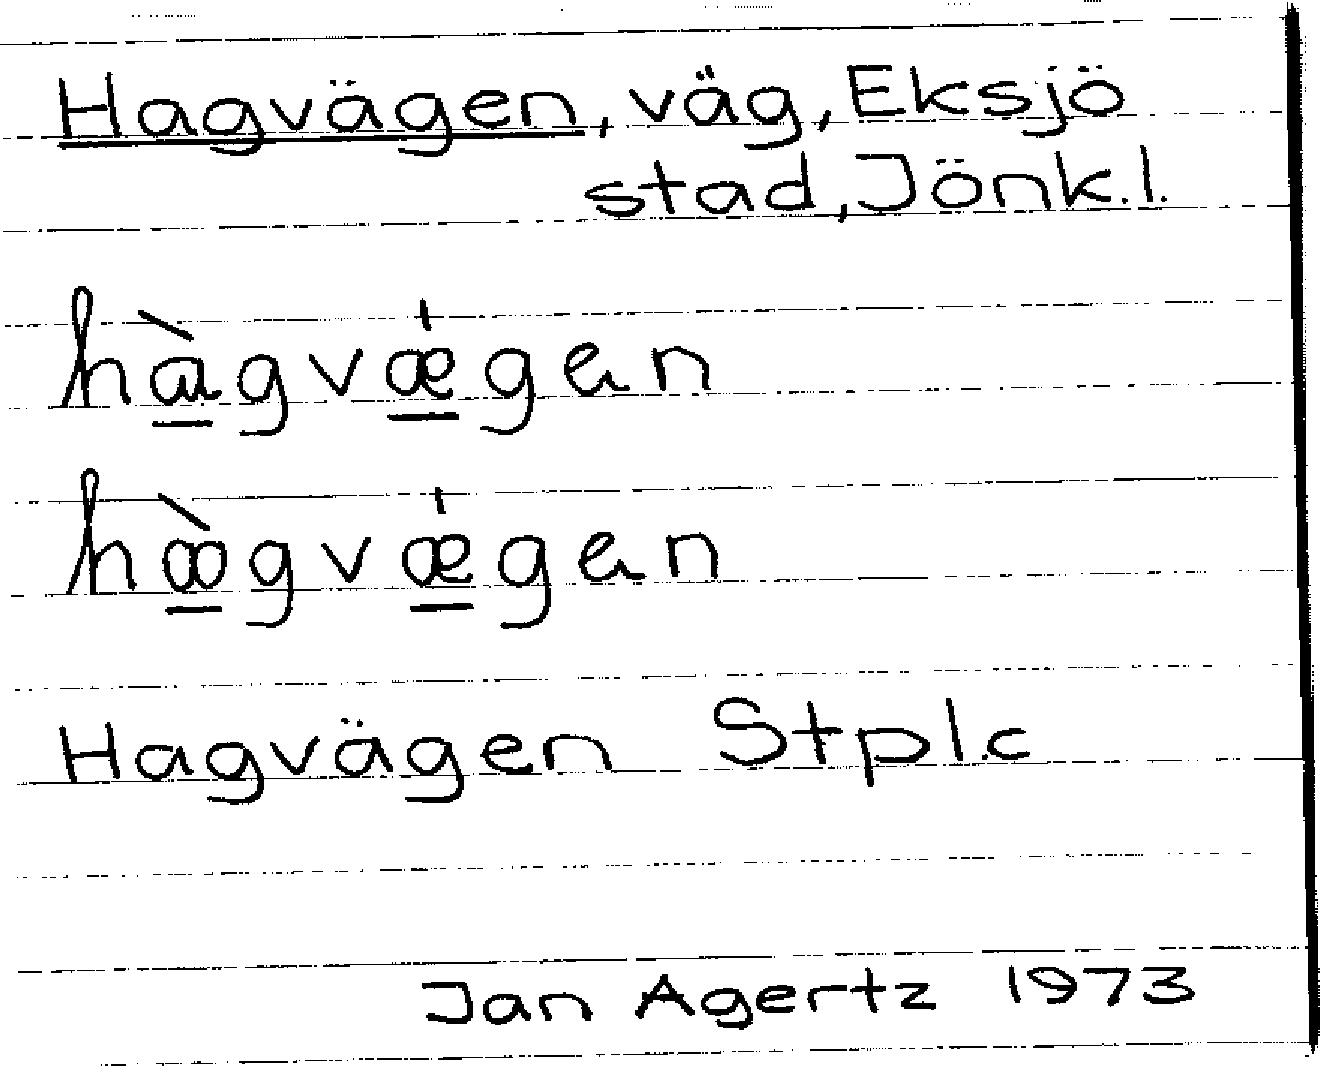 Hagvägen, väg, Eksjö
stad, Jönk.l.
hàgvǽgen
hògvǽgen
Hagvägen Stpl.c
Jan Agertz 1973